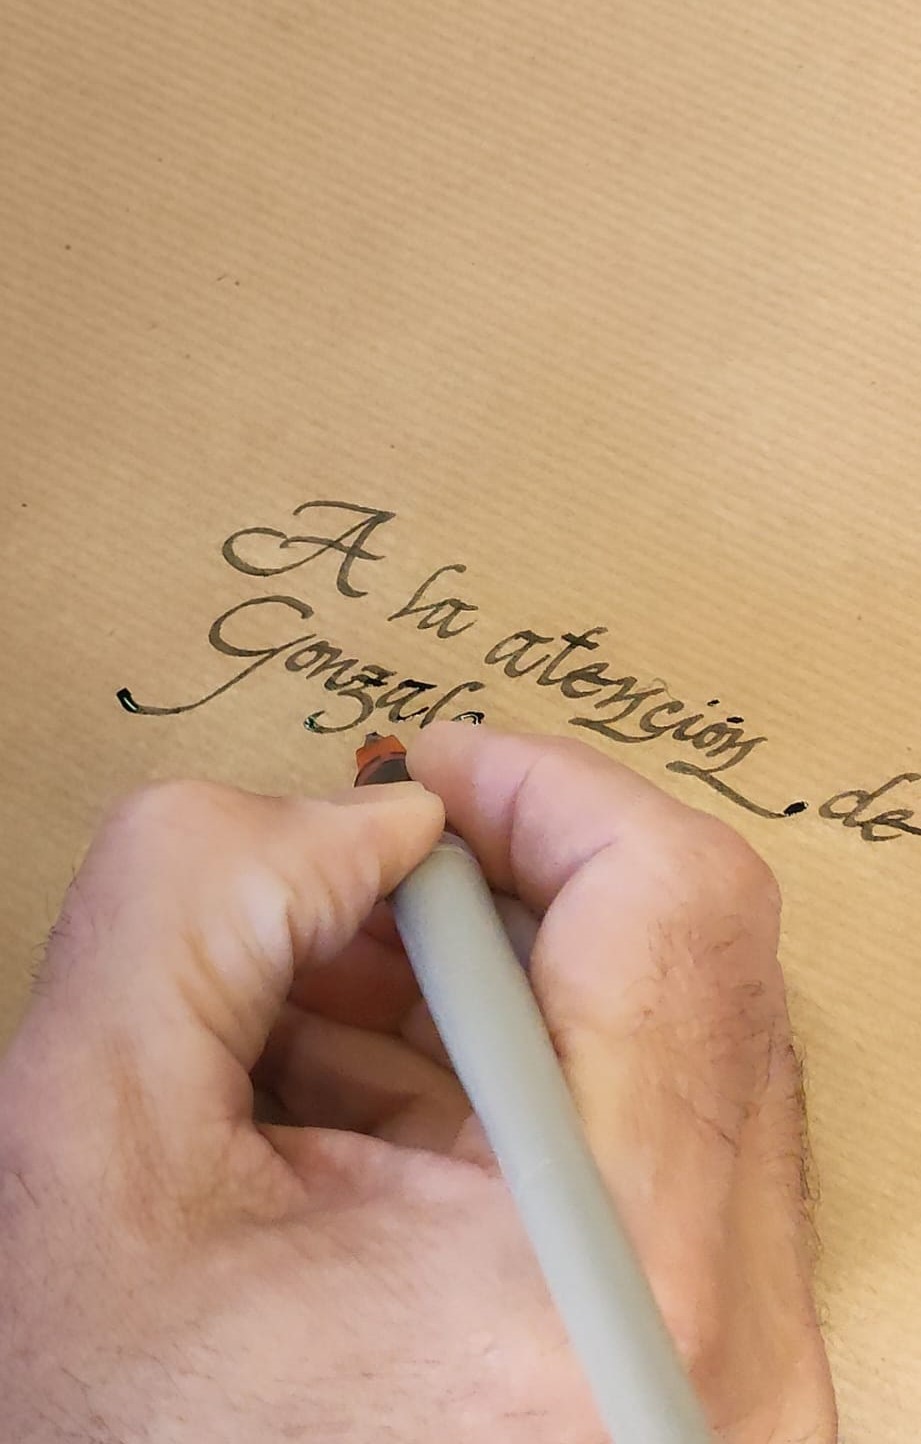 A la atención de
Gonzalo